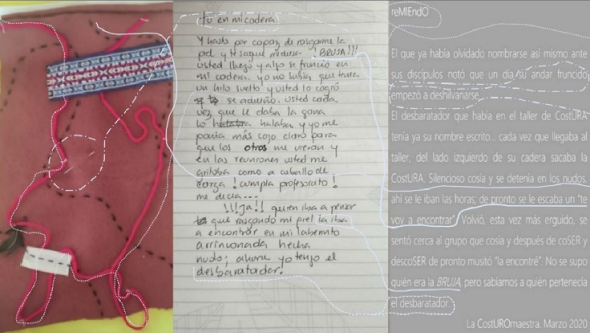 Tú en mi cadera
Y hasta fui capaz de rasgarme la
piel, y te saqué
¡BRUJA!!!
usted llegó y algo se frunció en
mi cadera, yo no sabía que tenía
un hilo suelto y usted lo
se adueñó. usted cada
vez que le daba la gana
lo halaba y yo me
ponía más cojo claro para
que los otros me vieran y
en las reuniones usted me
gritaba como a caballo de
carga ! cumpla profesorato !
me decía...
!!!ja!! quien iba a pensar
que rasgando mi piel la iba
a encontrar en mi laberinto
arrinconada, hecha
nudo; ahora yo tengo el
desbaratador.
reMIEndO
El que ya había olvidado nombrarse así mismo ante
sus discípulos notó que un día su andar fruncido
empezó a deshilvanarse.
El desbaratador que había en el taller de CostURA
tenía ya su nombre escrito... cada vez que llegaba al
taller, del lado izquierdo de su cadera sacaba la
CostURA. Silencioso cosía y se detenía en los nudos,
ahí se le iban las horas, de pronto se le escaba un "te
voy a encontrar". Volvió, esta vez más erguido, se
sentó cerca al grupo que cosía y después de coSER y
descoSER de pronto musitó "la encontré". No se supo
quién era la BRUJA, pero sabíamos a quién pertenecía
el desbaratador.
La CostUROmaestra. Marzo 2020